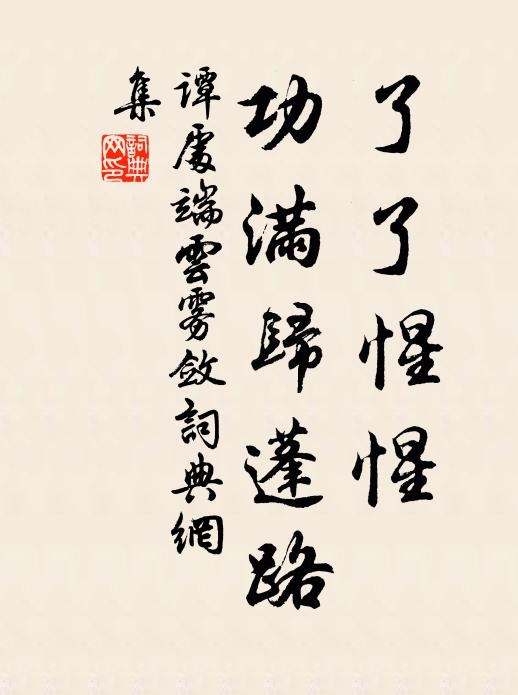 了了惺惺
功滿歸蓬路
譚處端雲雾斂詞典網
集
詞典
网印